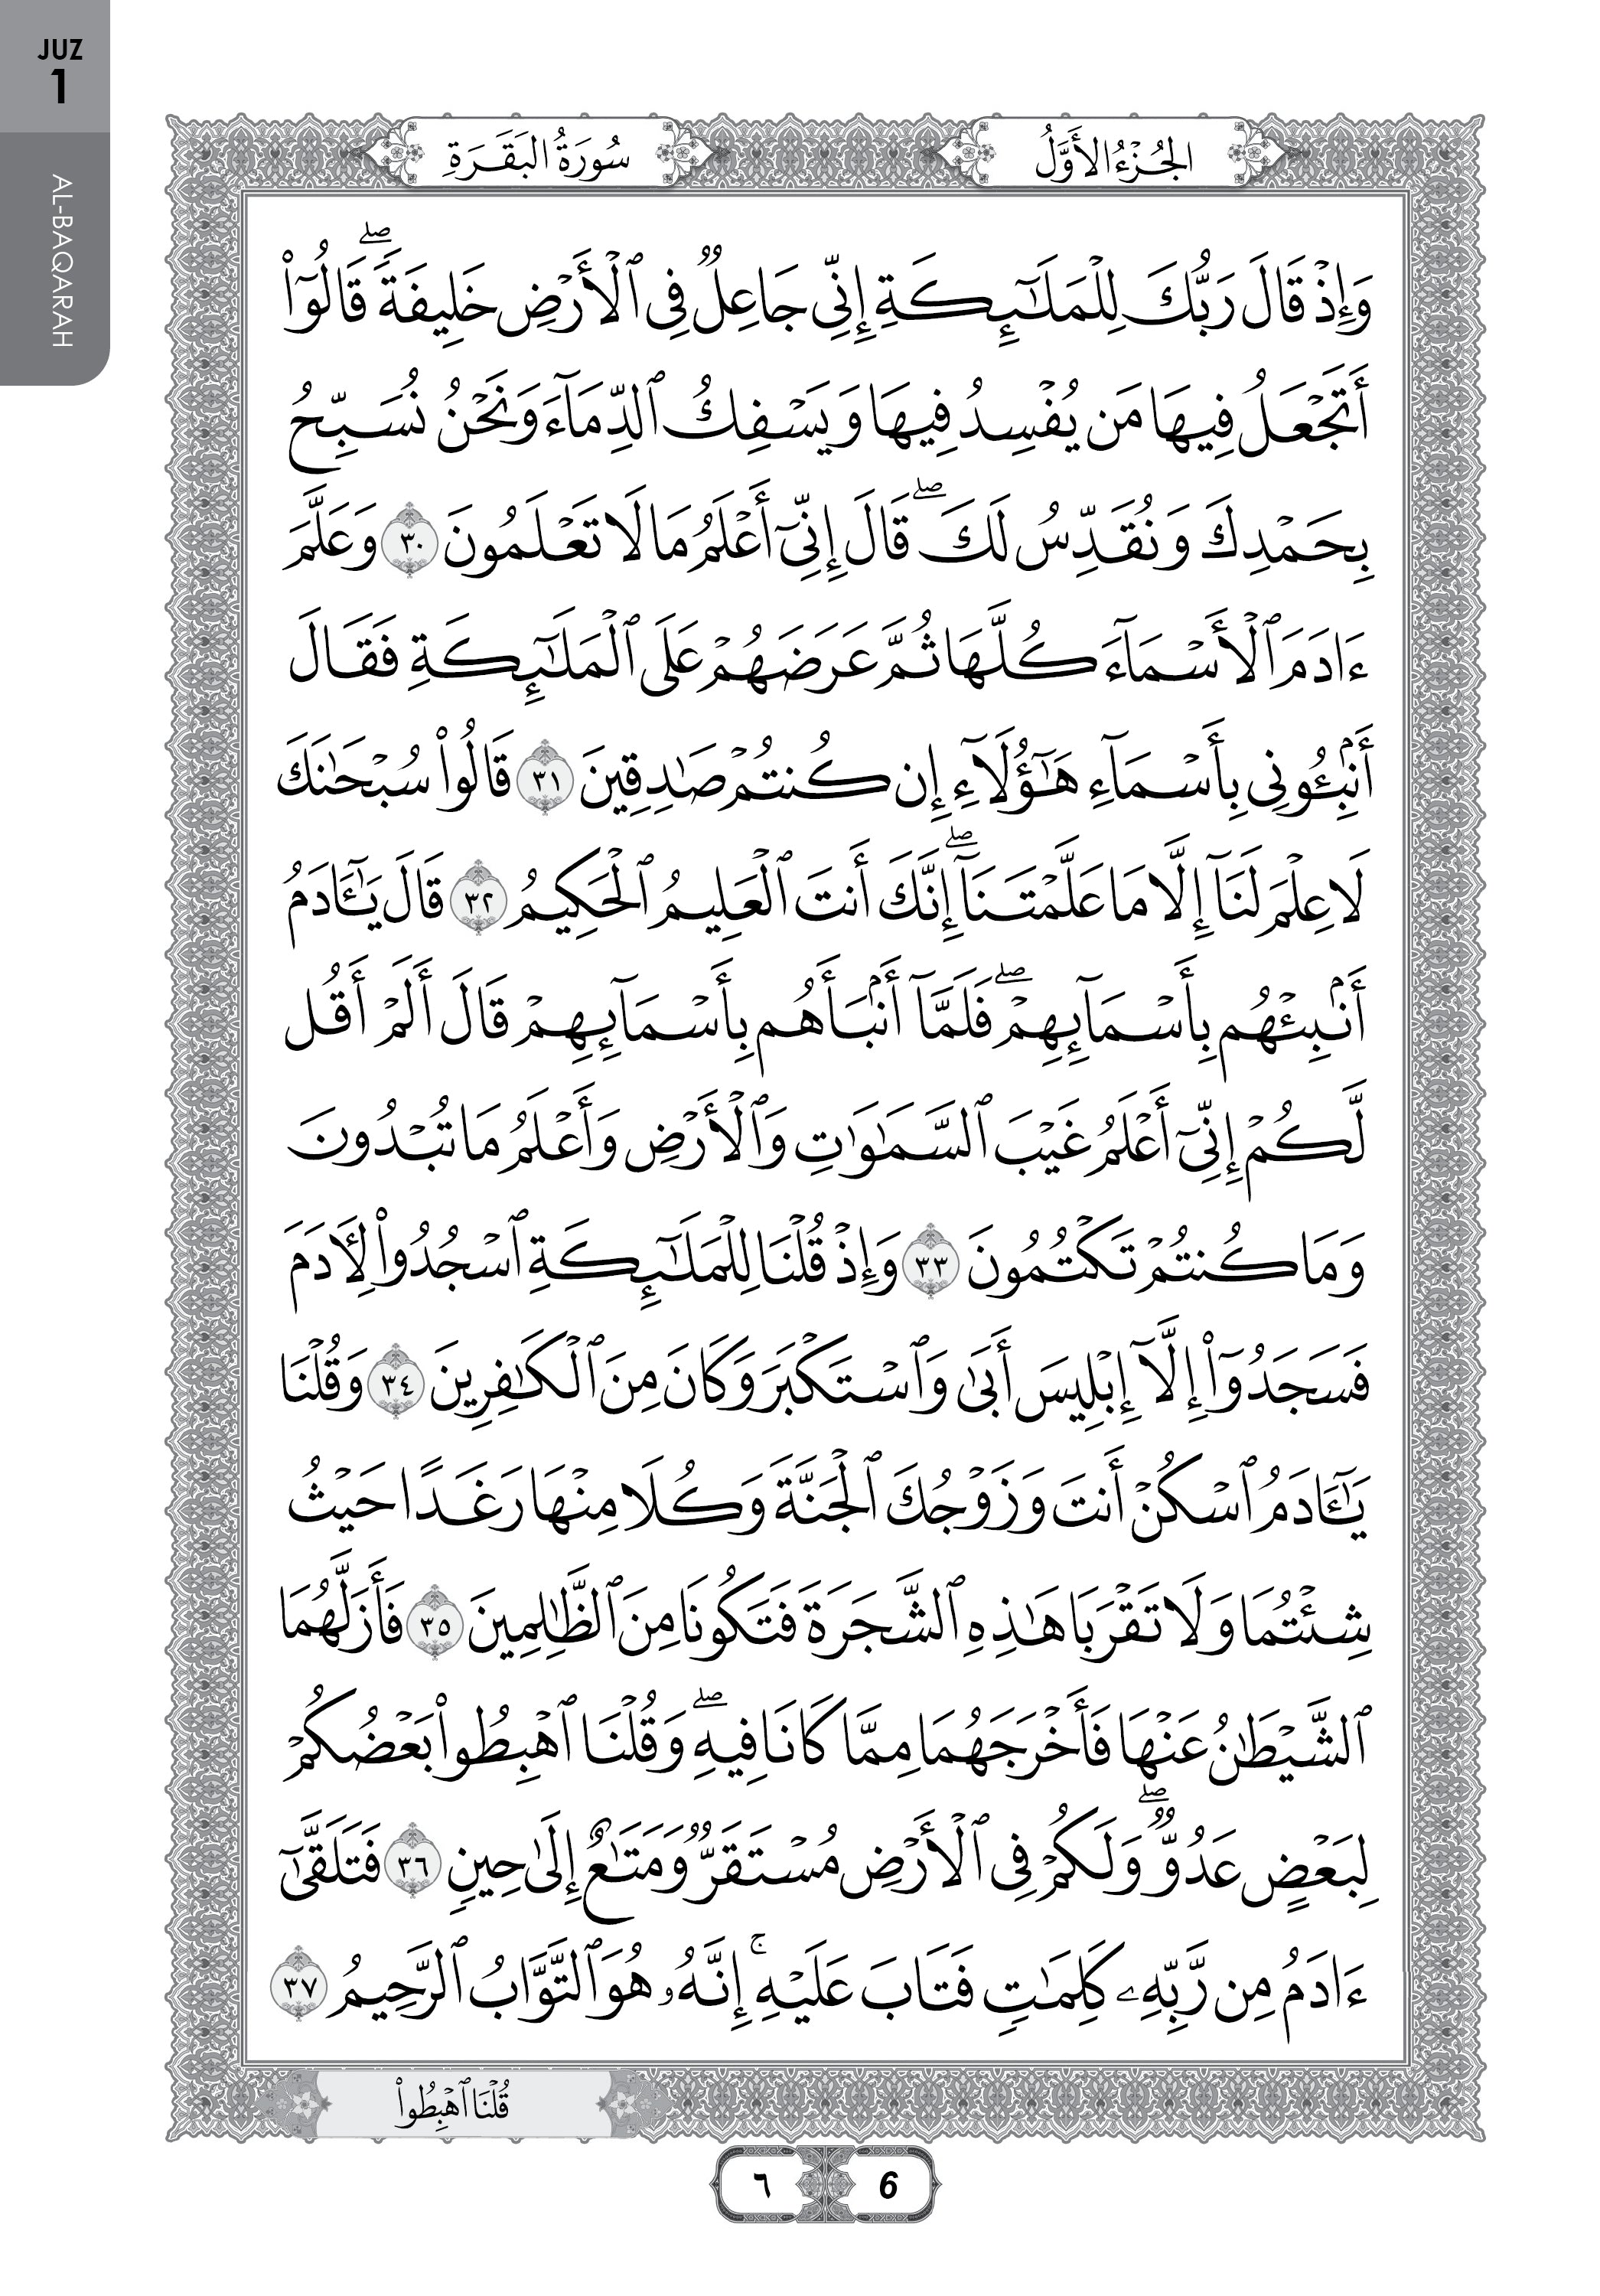 JUZ
1
AL-BAQARAH
الجُزْءُ الأَوَّلُ
سُورَةُ البَقَرَةِ
وَإِذْ قَالَ رَبُّكَ لِلْمَلَٰٓئِكَةِ إِنِّي جَاعِلٌ فِي ٱلْأَرْضِ خَلِيفَةً ۖ قَالُوٓا۟
أَتَجْعَلُ فِيهَا مَن يُفْسِدُ فِيهَا وَيَسْفِكُ ٱلدِّمَآءَ وَنَحْنُ نُسَبِّحُ
بِحَمْدِكَ وَنُقَدِّسُ لَكَ ۖ قَالَ إِنِّيٓ أَعْلَمُ مَا لَا تَعْلَمُونَ ٣٠ وَعَلَّمَ
ءَادَمَ ٱلْأَسْمَآءَ كُلَّهَا ثُمَّ عَرَضَهُمْ عَلَى ٱلْمَلَٰٓئِكَةِ فَقَالَ
أَنۢبِـُٔونِي بِأَسْمَآءِ هَٰٓؤُلَآءِ إِن كُنتُمْ صَٰدِقِينَ ٣١ قَالُوا۟ سُبْحَٰنَكَ
لَا عِلْمَ لَنَآ إِلَّا مَا عَلَّمْتَنَآ ۖ إِنَّكَ أَنتَ ٱلْعَلِيمُ ٱلْحَكِيمُ ٣٢ قَالَ يَٰٓـَٔادَمُ
أَنۢبِئْهُم بِأَسْمَآئِهِمْ ۖ فَلَمَّآ أَنۢبَأَهُم بِأَسْمَآئِهِمْ قَالَ أَلَمْ أَقُل
لَّكُمْ إِنِّيٓ أَعْلَمُ غَيْبَ ٱلسَّمَٰوَٰتِ وَٱلْأَرْضِ وَأَعْلَمُ مَا تُبْدُونَ
وَمَا كُنتُمْ تَكْتُمُونَ ٣٣ وَإِذْ قُلْنَا لِلْمَلَٰٓئِكَةِ ٱسْجُدُوا۟ لِـَٔادَمَ
فَسَجَدُوٓا۟ إِلَّآ إِبْلِيسَ أَبَىٰ وَٱسْتَكْبَرَ وَكَانَ مِنَ ٱلْكَٰفِرِينَ ٣٤ وَقُلْنَا
يَٰٓـَٔادَمُ ٱسْكُنْ أَنتَ وَزَوْجُكَ ٱلْجَنَّةَ وَكُلَا مِنْهَا رَغَدًا حَيْثُ
شِئْتُمَا وَلَا تَقْرَبَا هَٰذِهِ ٱلشَّجَرَةَ فَتَكُونَا مِنَ ٱلظَّٰلِمِينَ ٣٥ فَأَزَلَّهُمَا
ٱلشَّيْطَٰنُ عَنْهَا فَأَخْرَجَهُمَا مِمَّا كَانَا فِيهِ ۖ وَقُلْنَا ٱهْبِطُوا۟ بَعْضُكُمْ
لِبَعْضٍ عَدُوٌّ ۖ وَلَكُمْ فِي ٱلْأَرْضِ مُسْتَقَرٌّ وَمَتَٰعٌ إِلَىٰ حِينٍ ٣٦ فَتَلَقَّىٰٓ
ءَادَمُ مِن رَّبِّهِۦ كَلِمَٰتٍ فَتَابَ عَلَيْهِ ۚ إِنَّهُۥ هُوَ ٱلتَّوَّابُ ٱلرَّحِيمُ ٣٧
قُلْنَا ٱهْبِطُوا۟
٦ 6